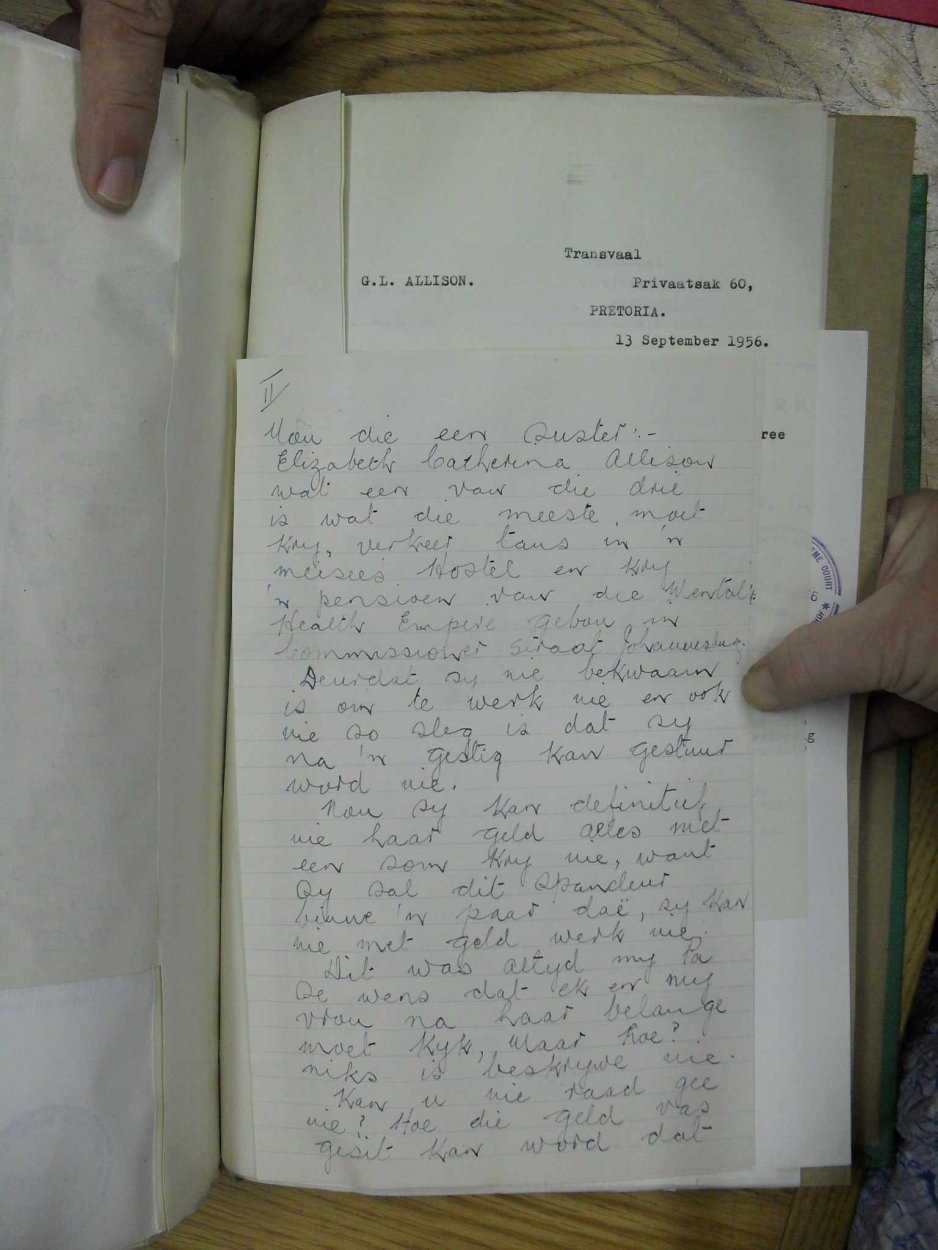 Transvaal
G.L. ALLISON.
Privaatsak 60,
PRETORIA.
13 September 1956.
ree
II
Nou die een suster:-
Elizabeth Catherina Allison
wat een van die drie
is wat die meeste moet
kry, verkeer tans in 'n
meisies Hostel en kry
'n pensioen van die Mental
Health Empire gebou in
Commissioner Straat Johannesburg.
Deurdat sy nie bekwaam
is om te werk nie en ook
nie so sleg is dat sy
na 'n gestig kan gestuur
word nie.
Nou sy kan definitief
nie haar geld alles met
een som kry nie, want
sy sal dit spandeur
binne 'n paar daë, sy kan
nie met geld werk nie.
Dit was altyd my Pa
se wens dat ek en my
vrou na haar belange
moet kyk, maar hoe?
niks is beskrywe nie.
Kan u nie raad gee
nie? Hoe die geld vas
gesit kan word dat